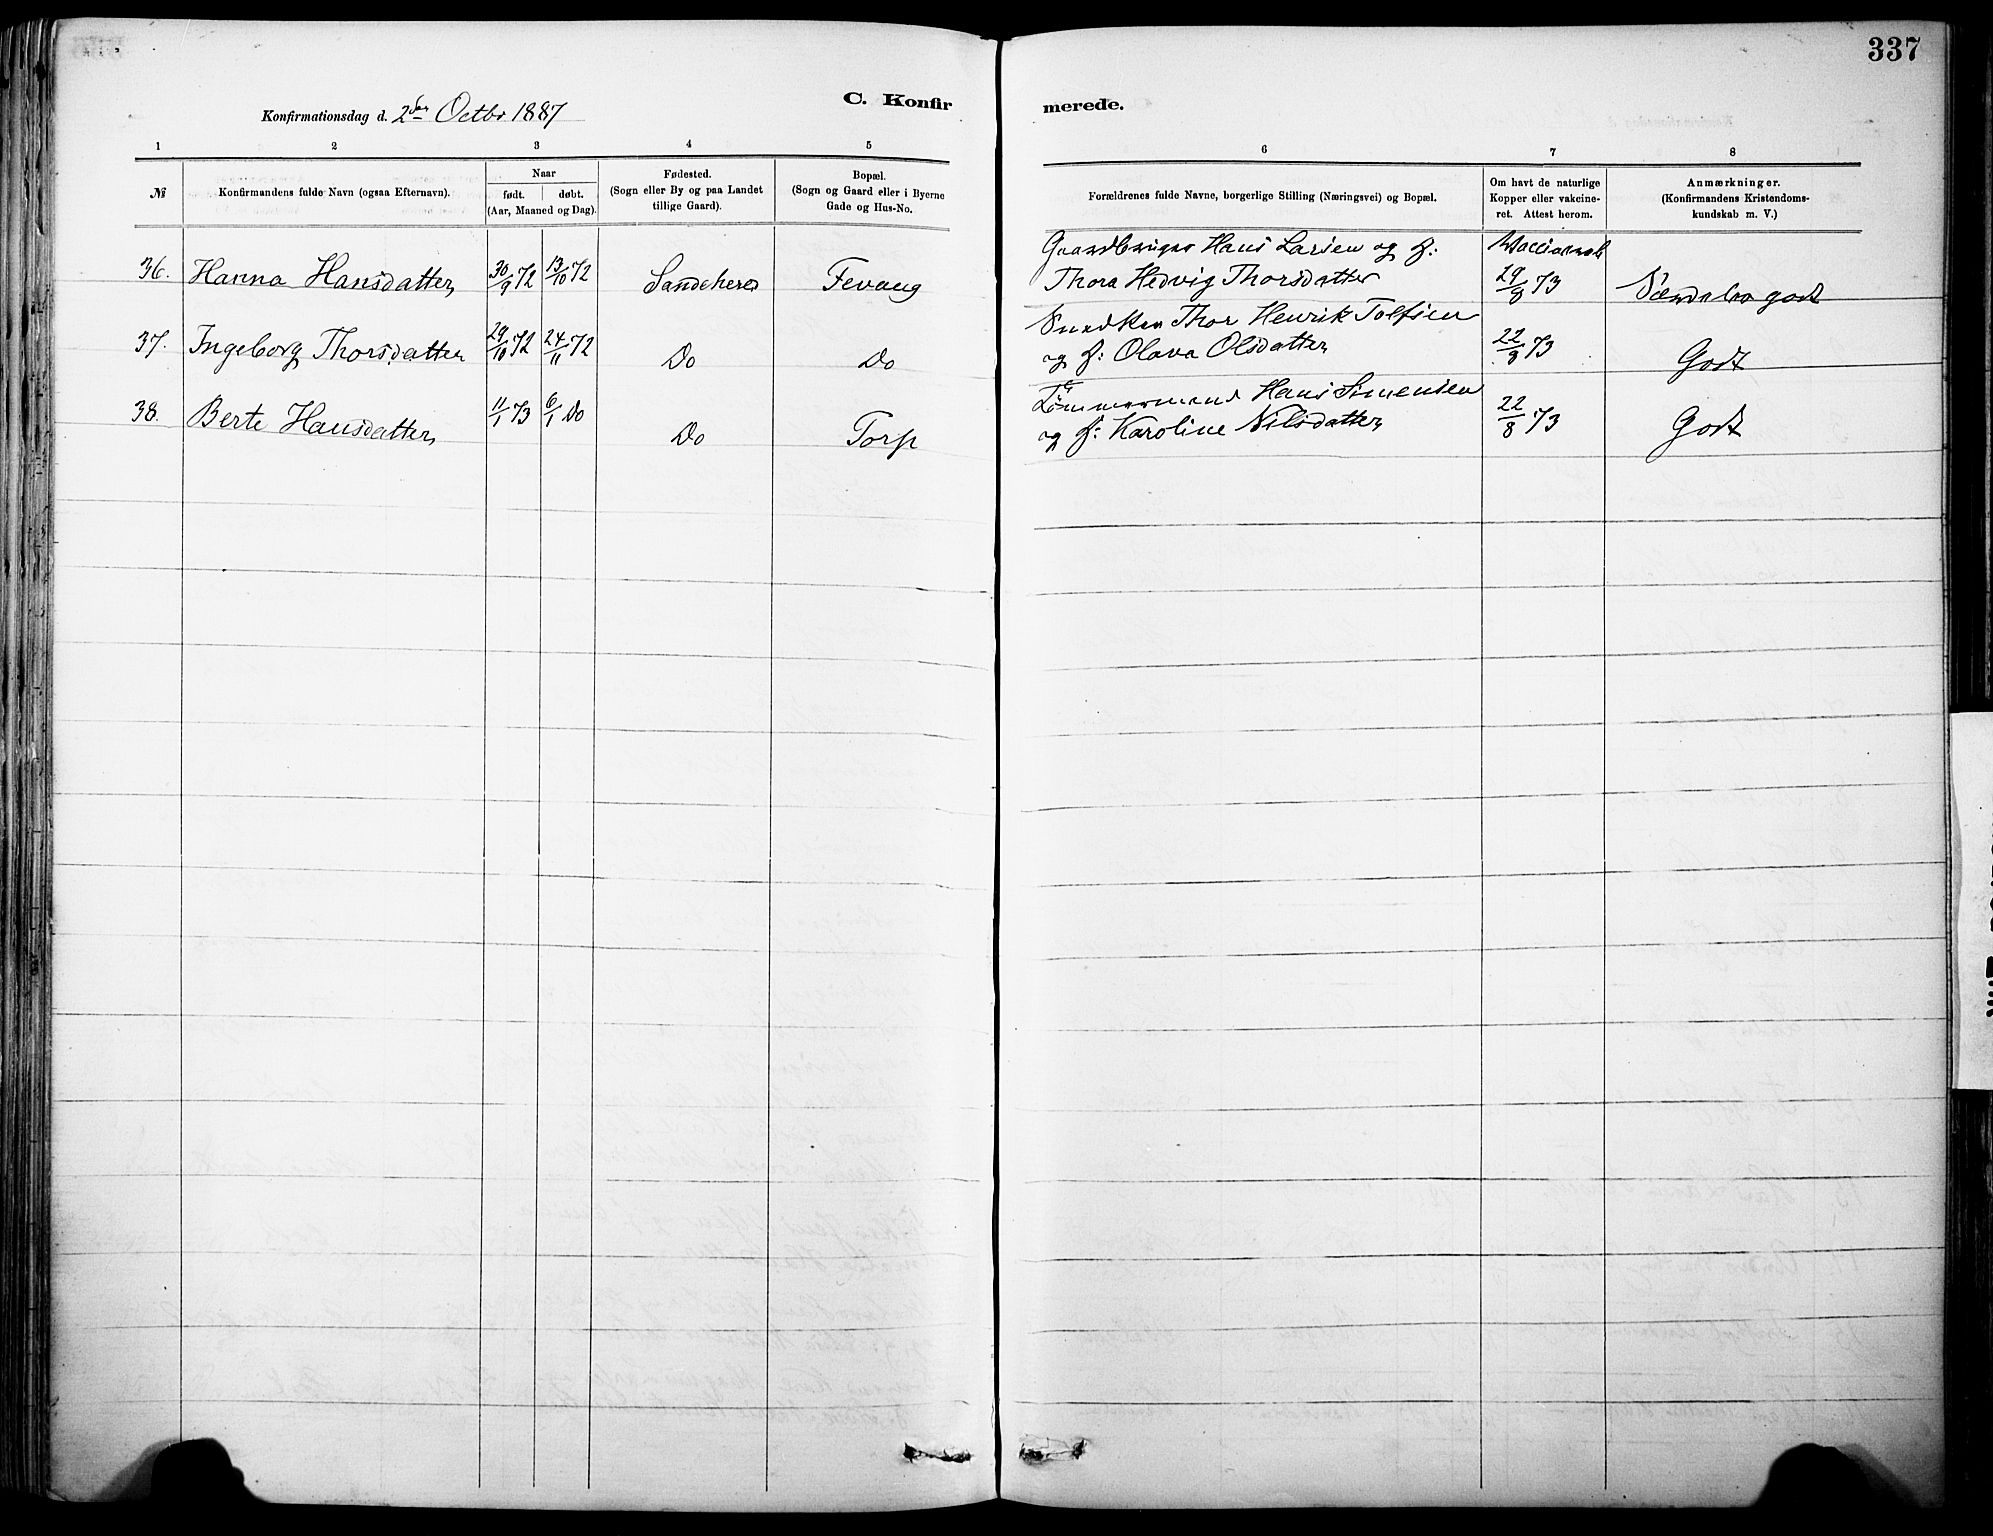 337
C. Konfirmerede.
Konfirmationsdag d. 2den Octbr 1887
1 2 3 4 5 6 7 8
№
Konfirmandens fulde Navn (ogsaa Efternavn).
Naar
født. døbt.
(Aar, Maaned og Dag).
Fødested.
(Sogn eller By og paa Landet
tillige Gaard).
Bopæl.
(Sogn og Gaard eller i Byerne
Gade og Hus-No.
Forældrenes fulde Navne, borgerlige Stilling (Næringsvei) og Bopæl.
Om havt de naturlige
Kopper eller vakcine-
ret. Attest herom.
Anmærkninger.
(Konfirmandens Kristendoms-
kundskab m. V.)
Gaardbruger Hans Larsen og H:
36. Hanna Hansdatter 30/9 72 13/10 72 Sandeherred Fevang Thora Hedvig Thorsdatter 29/8 73 Særdeles godt
Snedker Thor Henrik Tolfsen
37. Ingeborg Thorsdatter 29/10 72 24/11 72 Do Do og H: Olava Olsdatter 22/8 73 Godt
Tømmermand Hans Simensen
38. Berte Hansdatter 11/1 73 6/1 Do Do Torp og H: Karoline Nilsdatter 22/8 73 Godt